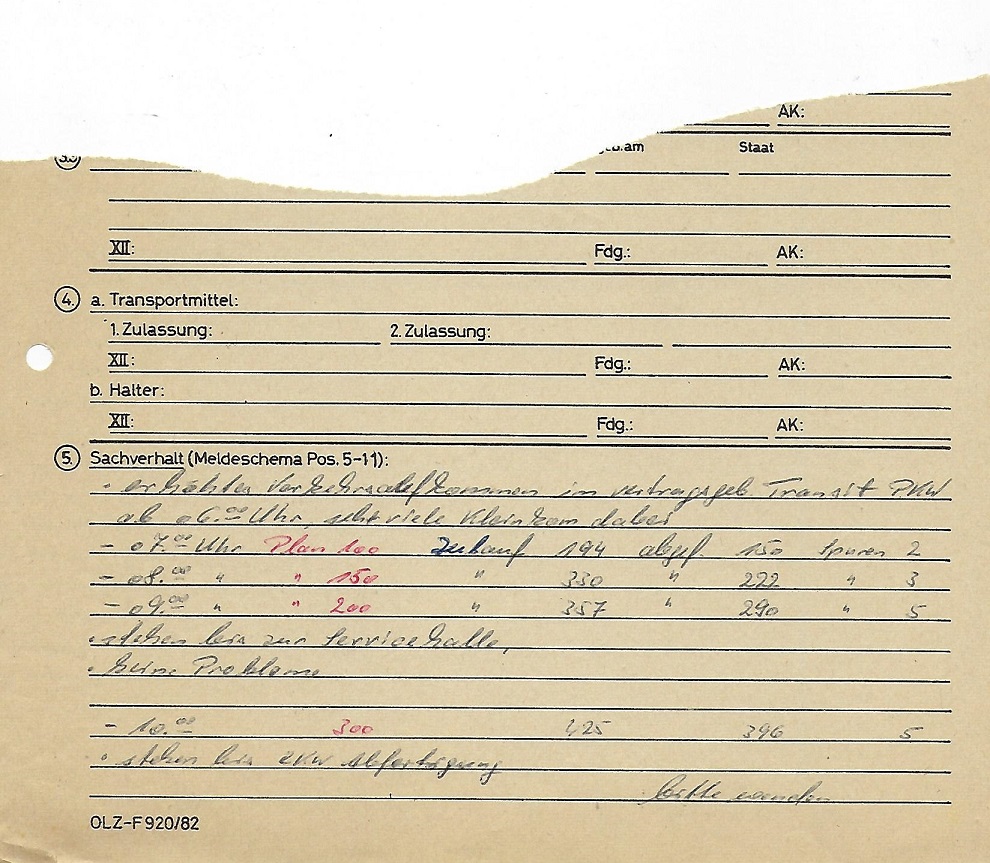 AK:
3.
geb.am Staat
XII: Fdg.: AK:
4. a. Transportmittel:
1. Zulassung: 2. Zulassung:
XII: Fdg.: AK:
b. Halter:
XII: Fdg.: AK:
5. Sachverhalt (Meldeschema Pos. 5-11):
- erhöhtes Verkehrsaufkommen im vertragsgeb. Transit PKW
ab 06.00 Uhr, sehr viele dabei
- 07.00 Uhr Plan 100 Zulauf 194 abgef. 150 Spuren 2
- 08.00 " " 150 " 330 " 222 " 3
- 09.00 " " 200 " 357 " 290 " 5
- stehen bis zur Servicehalle,
- keine Probleme
- 10.00 300 425 396 5
- stehen bis LKW Abfertigung
bitte wenden
OLZ-F 920/82